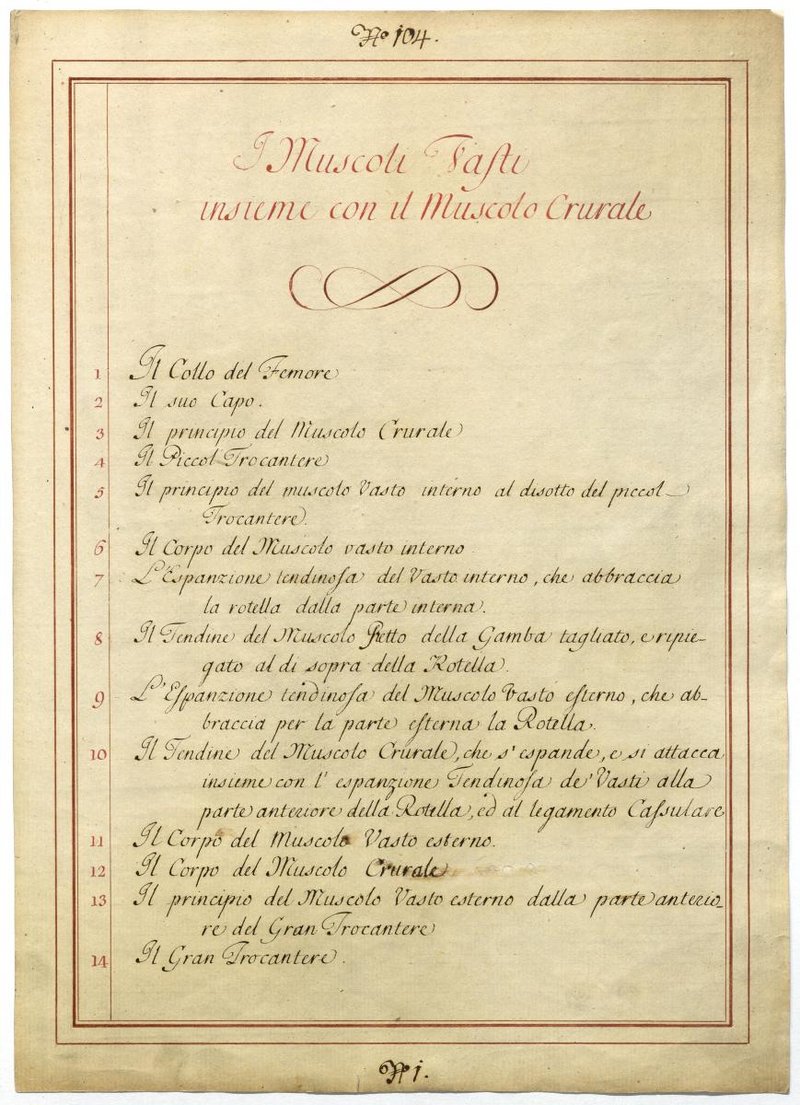 No 104.
I Muscoli Vasti
insieme con il Muscolo Crurale
1 Il Collo del Femore
2 Il suo Capo.
3 Il principio del Muscolo Crurale
4 Il Piccol Trocantere
5 Il principio del muscolo Vasto interno al disotto del piccol
Trocantere.
6 Il Corpo del Muscolo vasto interno.
7 L'Espanzione tendinosa del Vasto interno, che abbraccia
la rotella dalla parte interna.
8 Il Tendine del Muscolo Retto della Gamba tagliato, e ripie-
gato al di sopra della Rotella.
9 L'Espanzione tendinosa del Muscolo Vasto esterno, che ab-
braccia per la parte esterna la Rotella.
10 Il Tendine del Muscolo Crurale, che s'espande, e si attacca
insieme con l'espanzione Tendinosa de' Vasti alla
parte anteriore della Rotella, ed al legamento Cassulare
11 Il Corpo del Muscolo Vasto esterno.
12 Il Corpo del Muscolo Crurale
13 Il principio del Muscolo Vasto esterno dalla parte anterio-
re del Gran Trocantere
14 Il Gran Trocantere.
No 1.